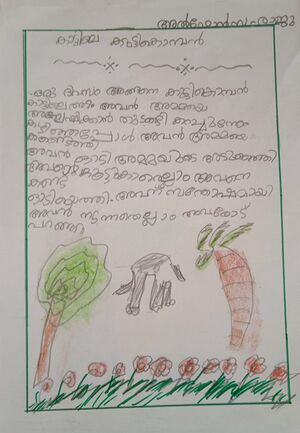 അൽഫോൻസ രാജു
കാട്ടിലെ കുട്ടികൊമ്പൻ
ഒരു ദിവസം അങ്ങനെ കുട്ടികൊമ്പൻ
കാട്ടിലെത്തി അവൻ അമ്മയെ
അന്വേഷിക്കാൻ തുടങ്ങി കുറച്ചുനേരം
കഴിഞ്ഞപ്പോൾ അവൻ അമ്മയെ
കണ്ടെത്തി
അവൻ ഓടി അമ്മയുടെ അടുക്കലെത്തി
അവന്റെ കൂട്ടുകാരെല്ലാം അവനെ
കണ്ട്
ഓടിയെത്തി. അവന് സന്തോഷമായി
അവൻ നടന്നതെല്ലാം അവരോട്
പറഞ്ഞു